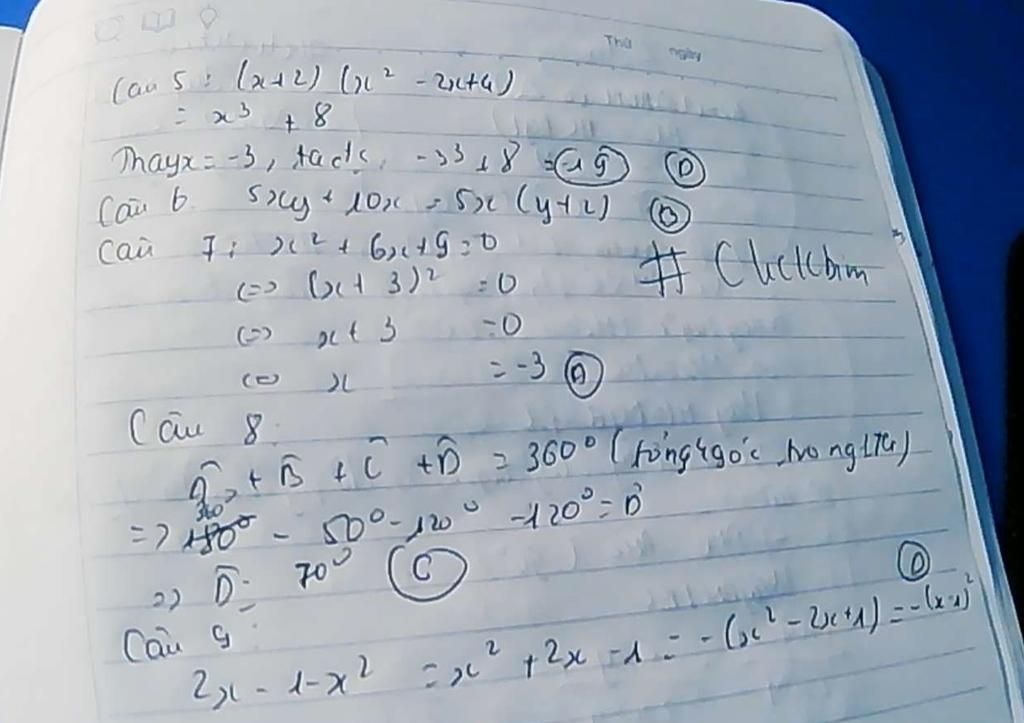 Thứ ngày
Câu 5 : (x+2) (x² - 2x+4)
= x³ + 8
Thay x = -3, ta đc: -3³ + 8 = -19 (D)
Câu 6. 5xy + 10x = 5x (y+2) (B)
Câu 7 : x² + 6x + 9 = 0
<=> (x + 3)² = 0
# Chckbim
<=> x + 3 = 0
<=> x = -3 (A)
Câu 8 :
Â + B̂ + Ĉ + D̂ = 360° (tổng 4 góc trong 1 tg)
360°
=> 180° - 50° - 120° - 120° = D̂
=> D̂ = 70° (C)
Câu 9 :
2x - 1 - x² = x² + 2x - 1 = - (x² - 2x + 1) = -(x-1)² (D)